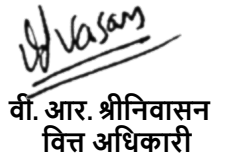 वी. आर. श्रीनिवासन
वित्त अधिकारी